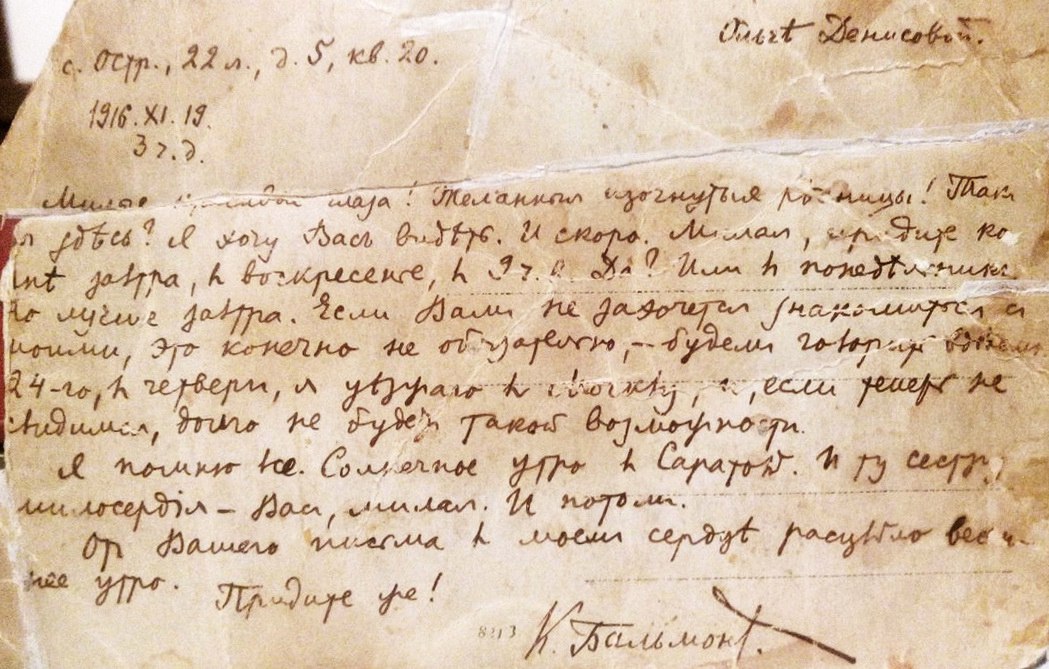 Ольгѣ Денисовой.
с. Остр., 22 л., д. 5, кв. 20.
1916. XI. 19.
3 ч. д.
глаза! Желанныя изогнутыя рѣсницы! Такъ
здѣсь? Я хочу Васъ видѣть. И скоро. Милая, придите ко
мнѣ завтра, въ воскресенье, въ 9 ч. в. Да? Или въ понедѣльникъ
Но лучше завтра. Если Вамъ не захочется знакомиться съ
моими, это конечно не обязательно, – будемъ говорить вдвоемъ
24-го, въ четвергъ, я уѣзжаю въ Москву, и, если теперь не
свидимся, долго не будетъ такой возможности.
Я помню все. Солнечное утро въ Саратовѣ. И ту сестру
милосердія – Васъ, милая. И потомъ.
Отъ Вашего письма въ моемъ сердцѣ расцвѣло весен-
нее утро. Придите же!
8213 К. Бальмонтъ.